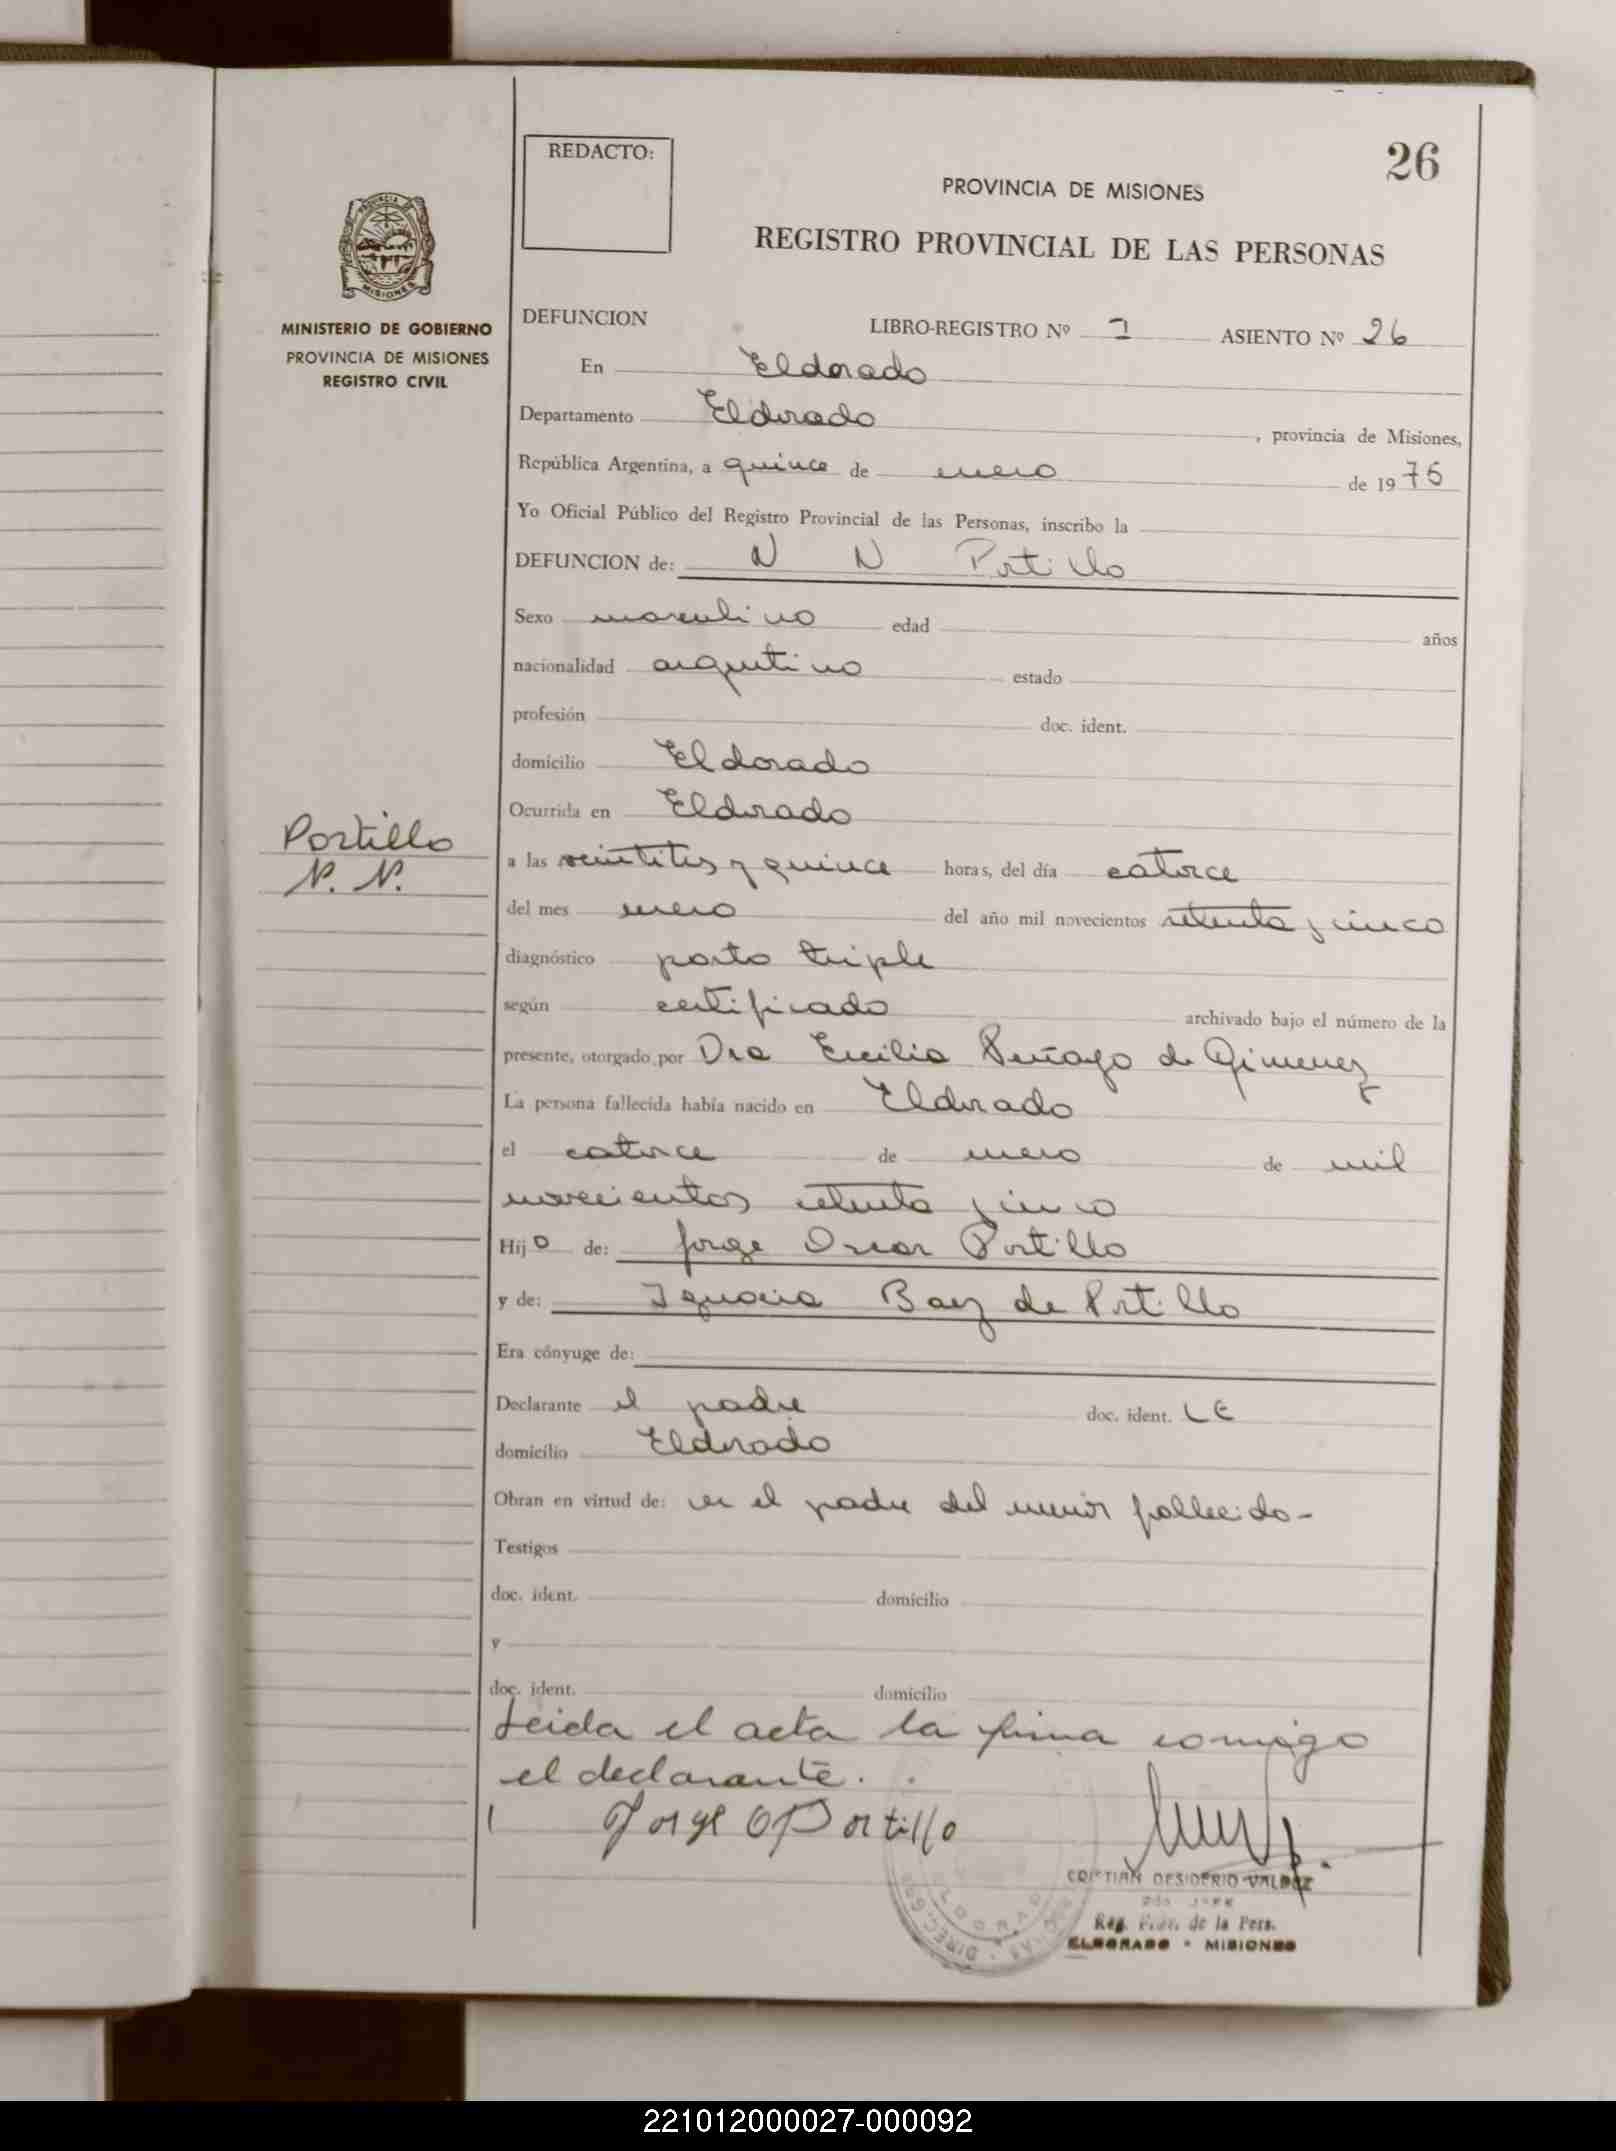 26
REDACTO:
PROVINCIA DE MISIONES
REGISTRO PROVINCIAL DE LAS PERSONAS
MISIONES
MINISTERIO DE GOBIERNO
PROVINCIA DE MISIONES
REGISTRO CIVIL
DEFUNCION LIBRO-REGISTRO Nº 1 ASIENTO Nº 26
En Eldorado
Departamento Eldorado, provincia de Misiones,
República Argentina, a quince de enero de 1975
Yo Oficial Público del Registro Provincial de las Personas, inscribo la
DEFUNCION de: N N Portillo
Sexo masculino edad años
nacionalidad argentino estado
profesión doc. ident.
domicilio Eldorado
Ocurrida en Eldorado
Portillo
N. N.
a las veintitres y quince horas, del día catorce
del mes enero del año mil novecientos setenta y cinco
diagnóstico parto triple
según certificado archivado bajo el número de la
presente, otorgado por Dra Ercilia Peñayo de Gimenez
La persona fallecida había nacido en Eldorado
el catorce de enero de mil
novecientos setenta y cinco
Hijo de: Jorge Oscar Portillo
y de: Ignacia Baez de Portillo
Era cónyuge de:
Declarante el padre doc. ident. LE
domicilio Eldorado
Obran en virtud de: ser el padre del menor fallecido-
Testigos
doc. ident. domicilio
y
doc. ident. domicilio
Leida el acta la firma comigo
el declarante.
Jorge O Portillo
CRISTIAN DESIDERIO VALDEZ
Reg. Prov. de la Pers.
ELDORADO - MISIONES
221012000027-000092